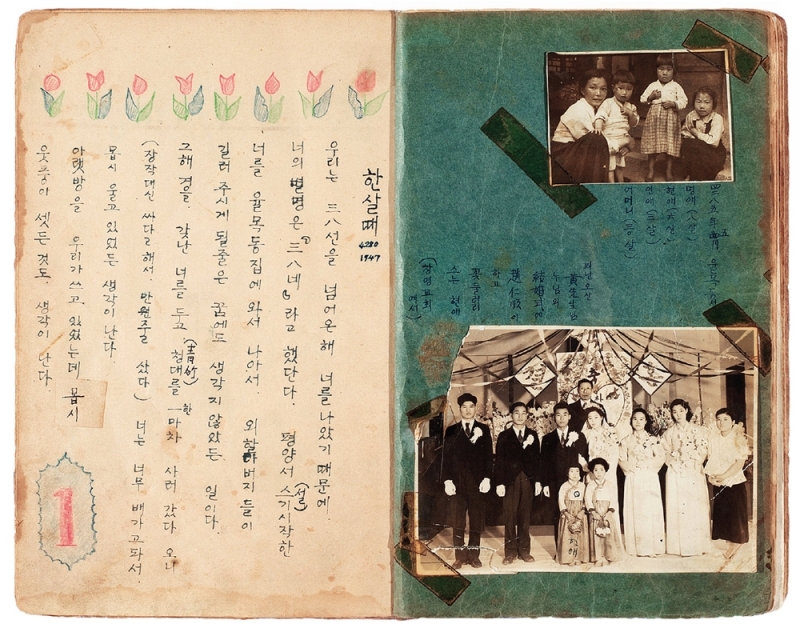 한살때
4280
1947
우리는 三八선을 넘어온 해 너를 나았기 때문에.
너의 별명은 三八네 라고 했단다. 평양서 스기시작한
(설)
너를 율목동집에 와서 나아서. 외할아버지들이
길러 주시게 될줄은 꿈에도 생각지 않았든 일이다.
그해 겨을. 갖난 너를 두고 청대를 한마차 사러 갔다 오니
(靑竹)
(장작대신 싸다고해서. 만원주고 샀다) 너는 너무 배가고파서.
몹시 울고 있었든 생각이 난다.
아랫방을 우리가쓰고 있었는데 몹시
웃풍이 셋든 것도. 생각이 난다.
1
四二八五年 五月 율목동
명애 (八살)
현애 (六살)
연애 (三살)
어머니
黃先生님
누님의
結婚때에
하고
스는 현애
(창영교회
에서)
현애